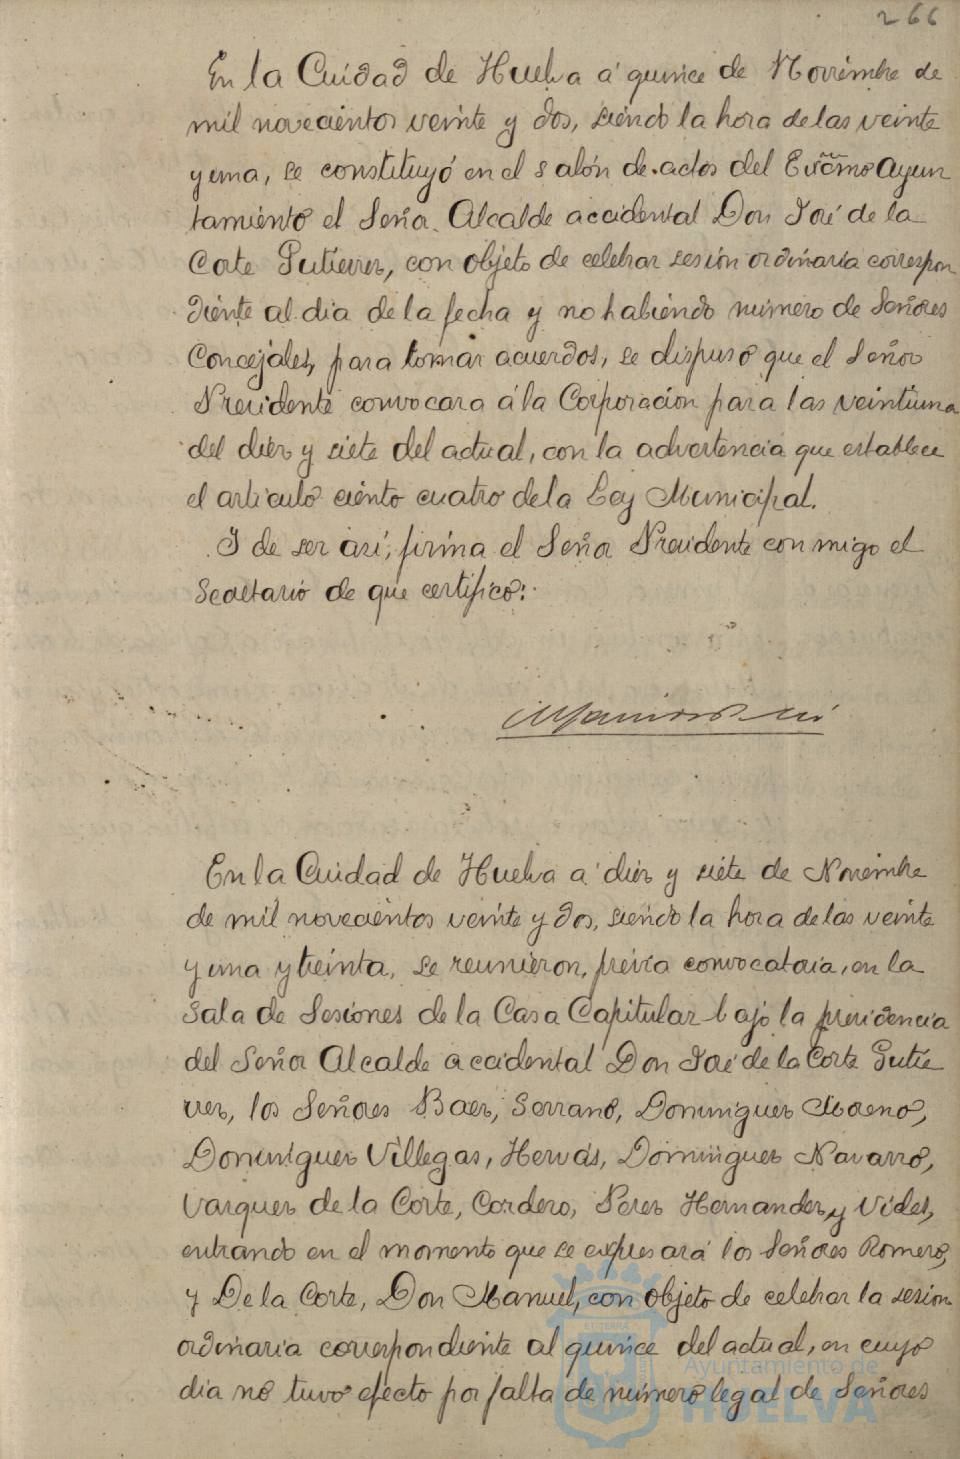 266
En la Cuidad de Huelva á quince de Noviembre de
mil novecientos veinte y dos, siendo la hora de las veinte
y una, se constituyó en el salón de actos del Excmo Ayun
tamiento el Señor Alcalde accidental Don José de la
Corte Gutierrez, con objeto de celebrar sesión ordinaria correspon
diente al dia de la fecha y no habiendo número de Señores
Concejales, para tomar acuerdos, se dispuso que el Señor
Presidente convocara á la Corporación para las veintiuna
del diez y siete del actual, con la advertencia que establece
el articulo ciento cuatro de la Ley Municipal.
Y de ser así, firma el Señor Presidente conmigo el
Secretario de que certifico:
En la Cuidad de Huelva a diez y siete de Noviembre
de mil novecientos veinte y dos, siendo la hora de las veinte
y una y treinta, se reunieron, previa convocatoria, en la
Sala de Sesiones de la Casa Capitular bajo la presidencia
del Señor Alcalde accidental Don José de la Corte Gutie
rrez, los Señores Baez, Serrano, Dominguez Moreno,
Dominguez Villegas, Hervás, Dominguez Navarro,
Vazquez de la Corte, Cordero, Perez Hernandez, y Vides,
entrando en el momento que se expresará los Señores Romero,
y De la Corte, Don Manuel, con objeto de celebrar la sesion
ordinaria correspondiente al quince del actual, en cuyo
dia no tuvo efecto por falta de número legal de Señores
Ayuntamiento de
HUELVA